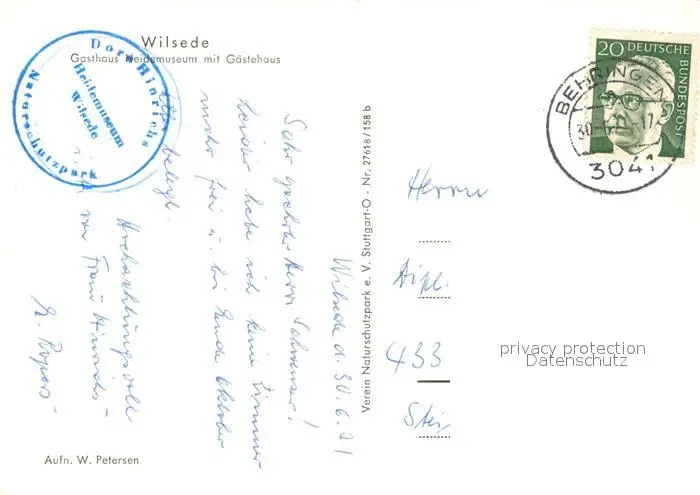 Wilsede
Gasthaus Heidemuseum mit Gästehaus
Dora Hinrichs
Heidemuseum
Wilsede
Naturschutzpark
Wilsede d. 30.6.71
Sehr geehrter Herr
Leider habe ich keine Zimmer
mehr frei u. bis Ende Oktober
alles belegt.
Hochachtungsvoll
Frau Hinrichs
Verein Naturschutzpark e. V. Stuttgart-O - Nr. 27618 / 158 b
20 DEUTSCHE
BUNDESPOST
BEHRINGEN
3041
Herrn
Dipl.
433
privacy protection
Datenschutz
Aufn. W. Petersen